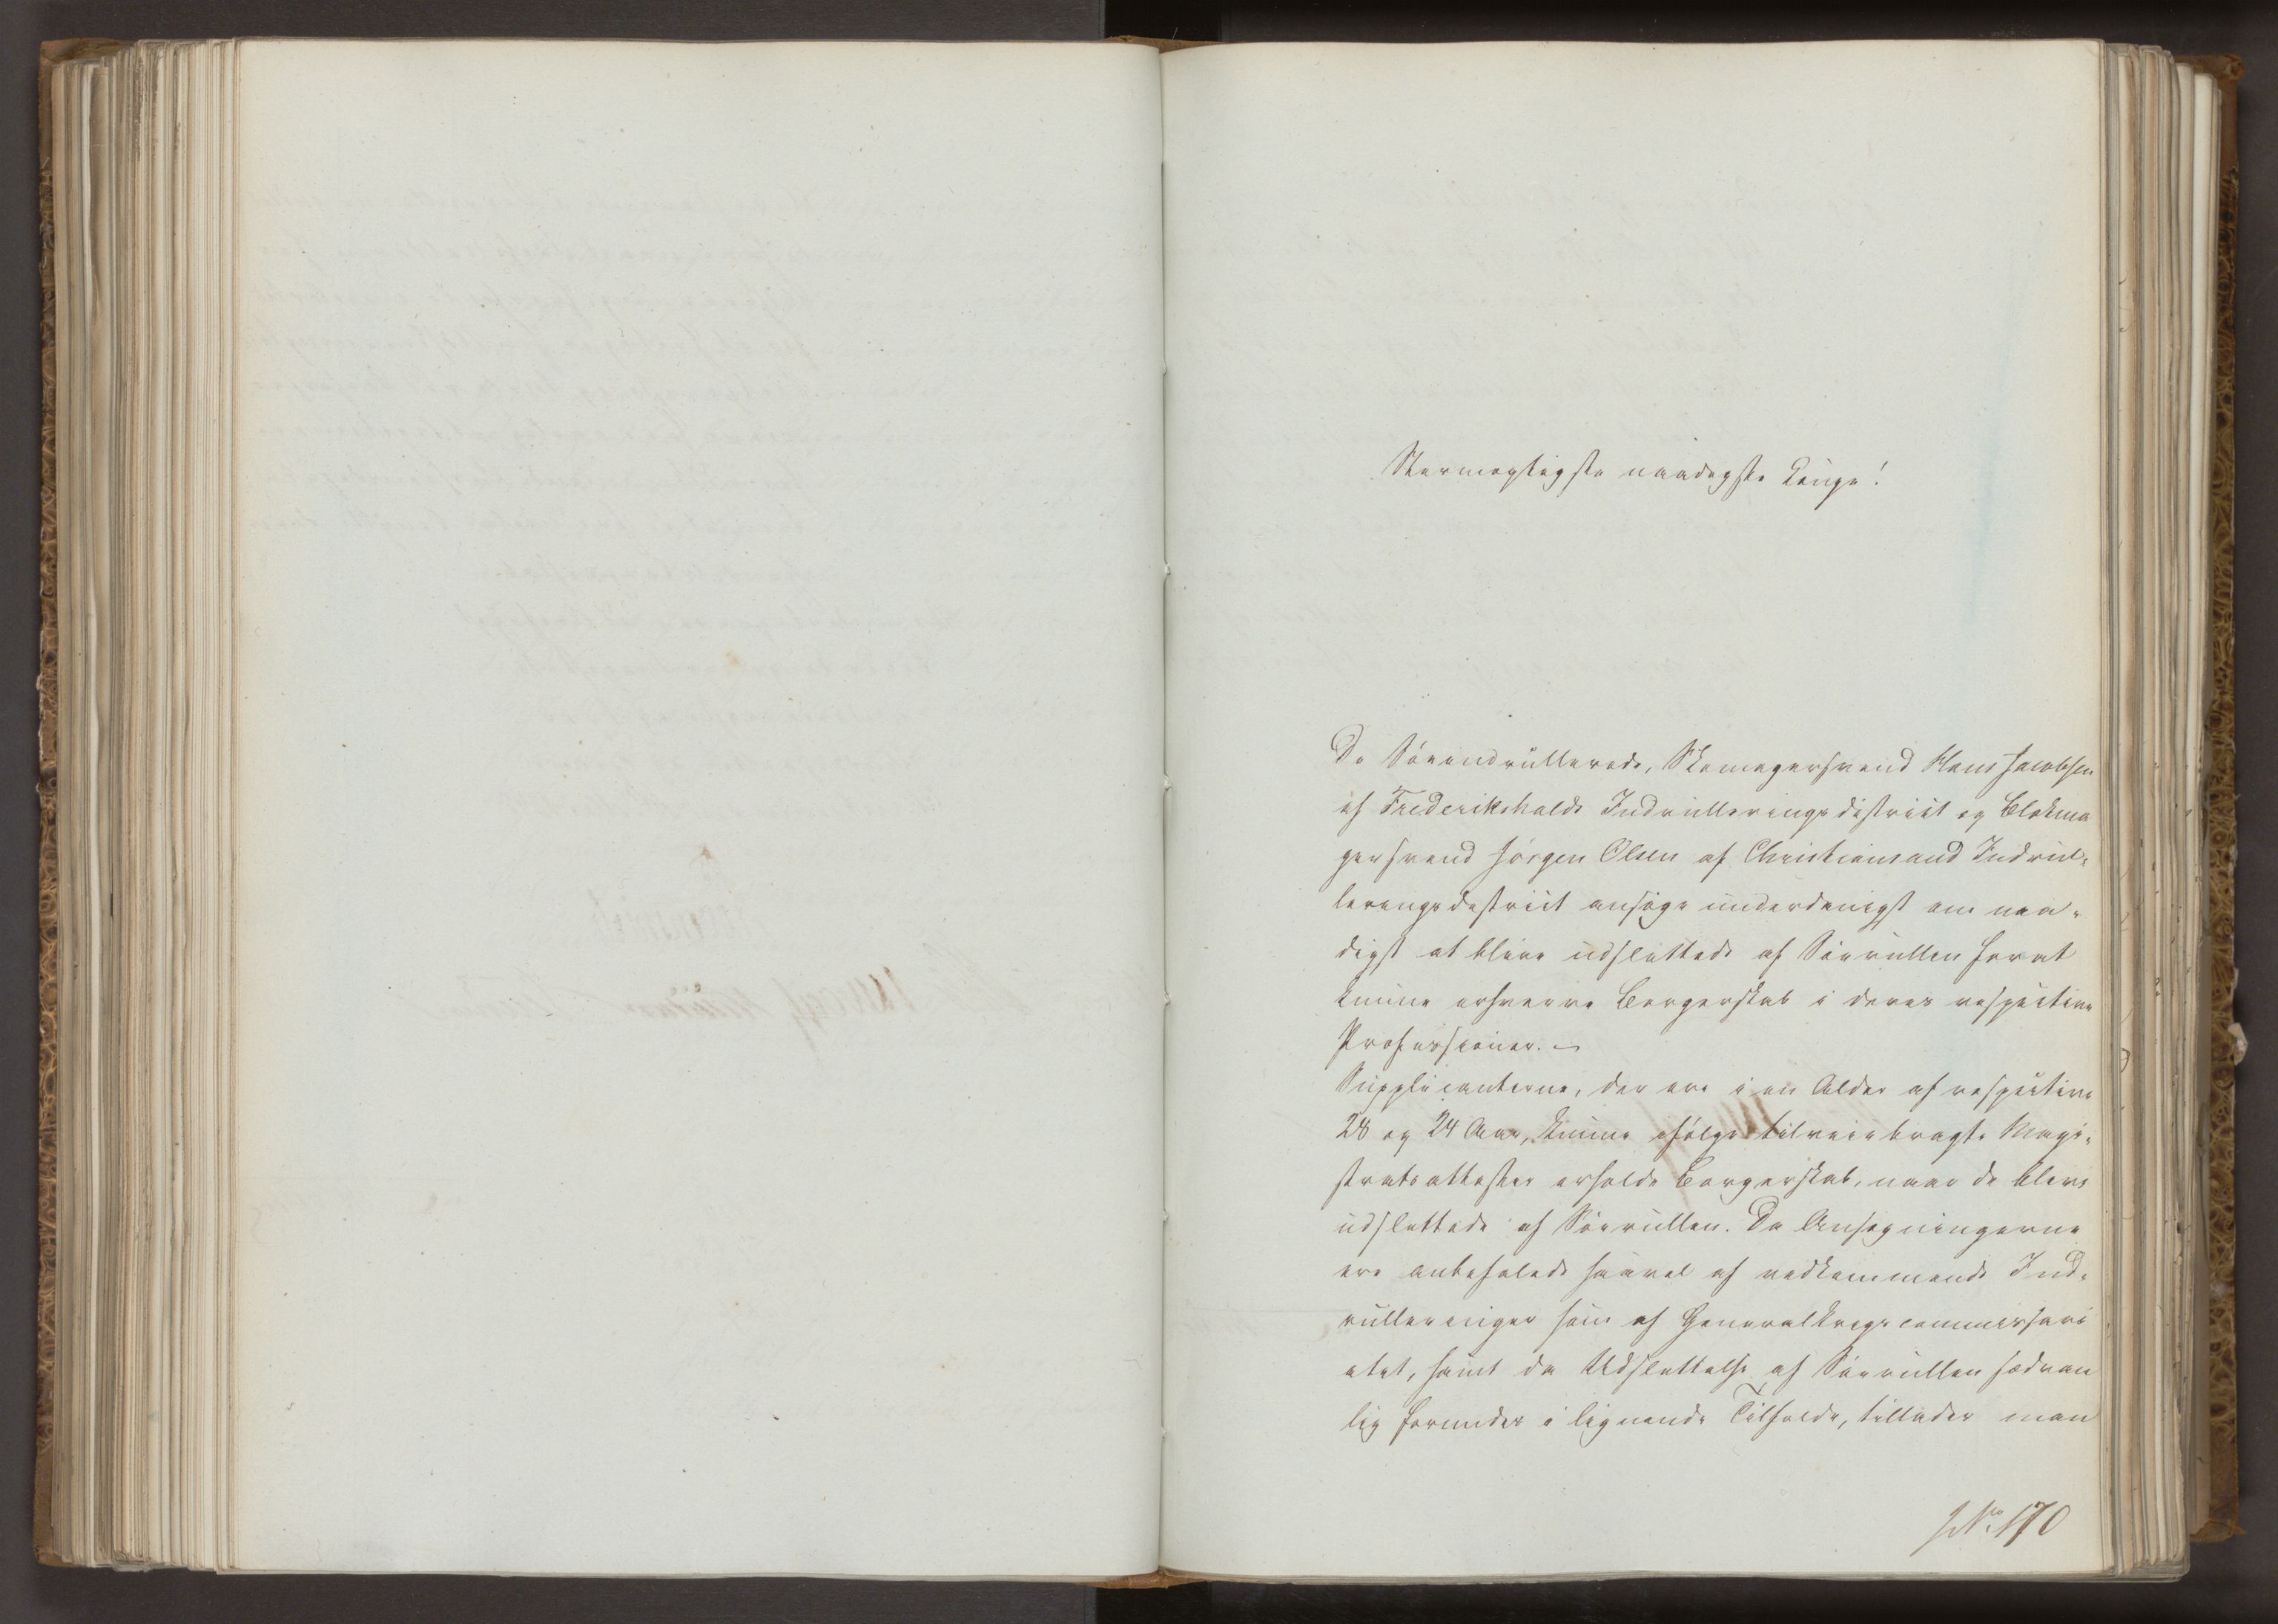 Stormægtigste naadigste Konge!
De Söeindrullerede, Skomagersvend Hans Jacobsen
af Frederikshalds Indrulleringsdistrict og Blokma
gersvend Jörgen Olsen af Christiansand Indrul-
leringsdistrict ansöge underdanigst om naa-
digst at blive udslettede af Söerullen forat
kunne erhverve Borgerskab i deres respective
Professioner. –
Supplicanterne, der ere i en Alder af respective
28 og 24 Aar, kunne ifölge tilveiebragte Magi-
stratsattester erholde Borgerskab, naar de blive
udslettede af Söerullen. Da Ansögningerne
ere anbefalede saavel af vedkommende Ind-
rulleringer som af Generalkrigscommissari
atet, samt da Udslettelse af Söerullen sædvan
lig forundes i lignende Tilfælde, tillader man
JNo 170